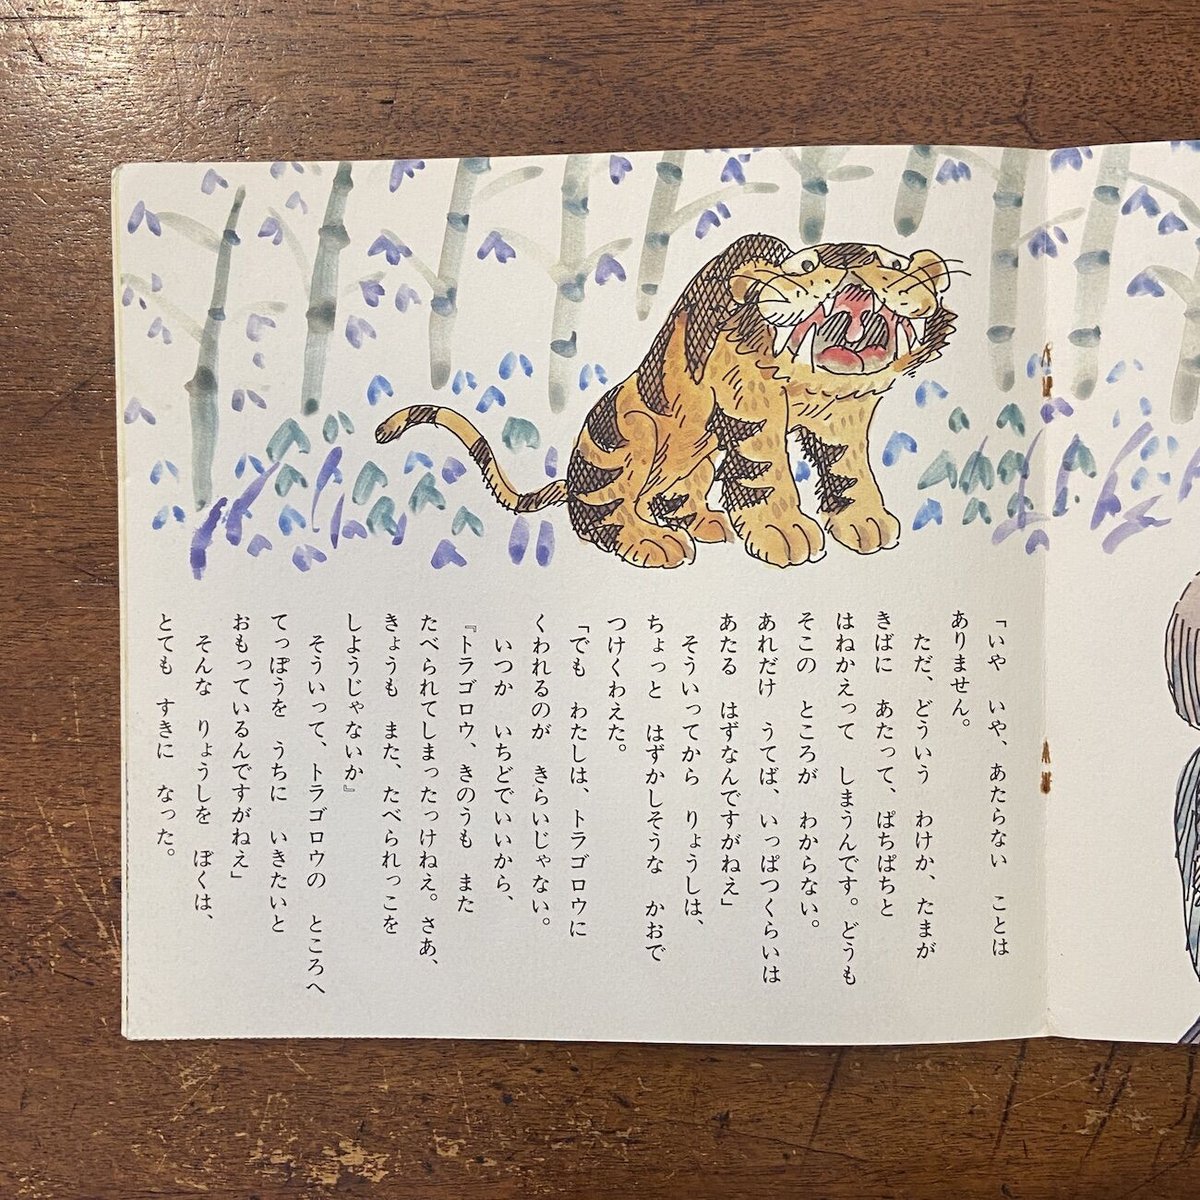 「いや　いや、あたらない　ことは
ありません。
　ただ、どういう　わけか、たまが
きばに　あたって、ぱちぱちと
はねかえって　しまうんです。どうも
そこの　ところが　わからない。
あれだけ　うてば、いっぱつくらいは
あたる　はずなんですがねえ」
　そういってから　りょうしは、
ちょっと　はずかしそうな　かおで
つけくわえた。
「でも　わたしは、トラゴロウに
くわれるのが　きらいじゃない。
　いつか　いちどでいいから、
『トラゴロウ、きのうも　また
たべられてしまったっけねえ。さあ、
きょうも　また、たべられっこを
しようじゃないか』
　そういって、トラゴロウの　ところへ
てっぽうを　うちに　いきたいと
おもっているんですがねえ」
　そんな　りょうしを　ぼくは、
とても　すきに　なった。